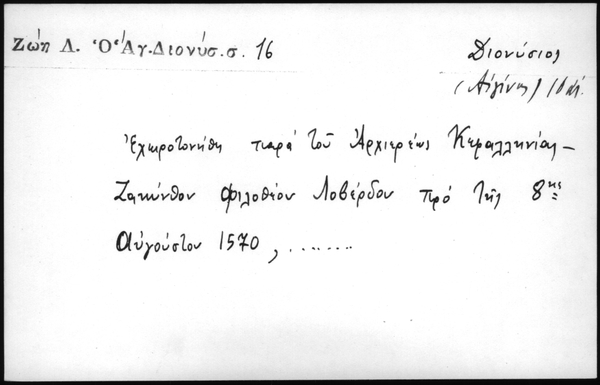 Ζώη Λ. Ὁ Ἅγ. Διονύσ. σ. 16
Διονύσιος
(Αἰγίνης) 16 αἰ.
Ἐχειροτονήθη παρά τοῦ Ἀρχιερέως Κεφαλληνίας –
Ζακύνθου Φιλοθέου Λοβέρδου πρό τῆς 8ης
Αὐγούστου 1570, ........